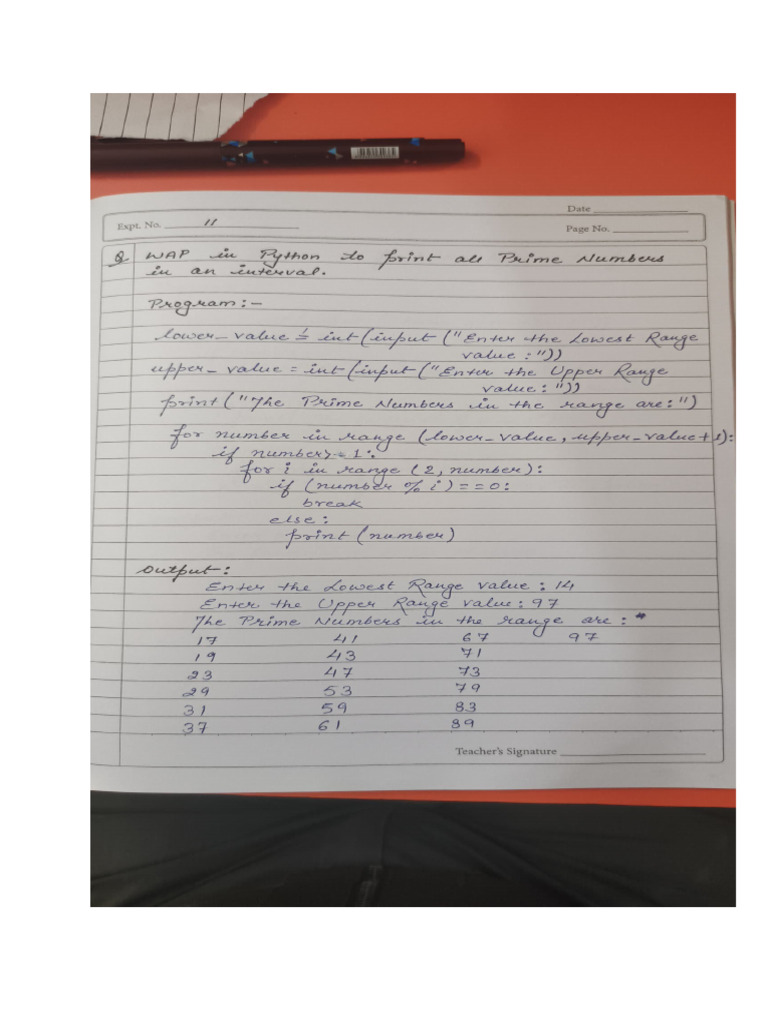 Date
Expt. No. 11
Page No.
Q WAP in Python to print all Prime Numbers
in an interval.
Program:-
lower_value = int(input ("Enter the Lowest Range
value :"))
upper_value = int(input("Enter the Upper Range
value: "))
print("The Prime Numbers in the range are:")
for number in range (lower_value, upper_value+1):
if number>=1:
for i in range (2, number):
if (number % i)==0:
break
else:
print(number)
Output:
Enter the Lowest Range value : 14
Enter the Upper Range value: 97
The Prime Numbers in the range are :
17 41 67 97
19 43 71
23 47 73
29 53 79
31 59 83
37 61 89
Teacher's Signature